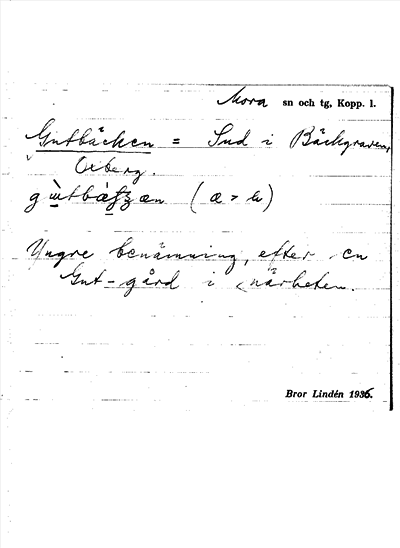 Mora sn och tg, Kopp. l.
Gutbäcken = Sud i Bäckgraven,
Oxberg.
(æ > ω)
Yngre benämning, efter en
Gut-gård i närheten.
Bror Lindén 1936.